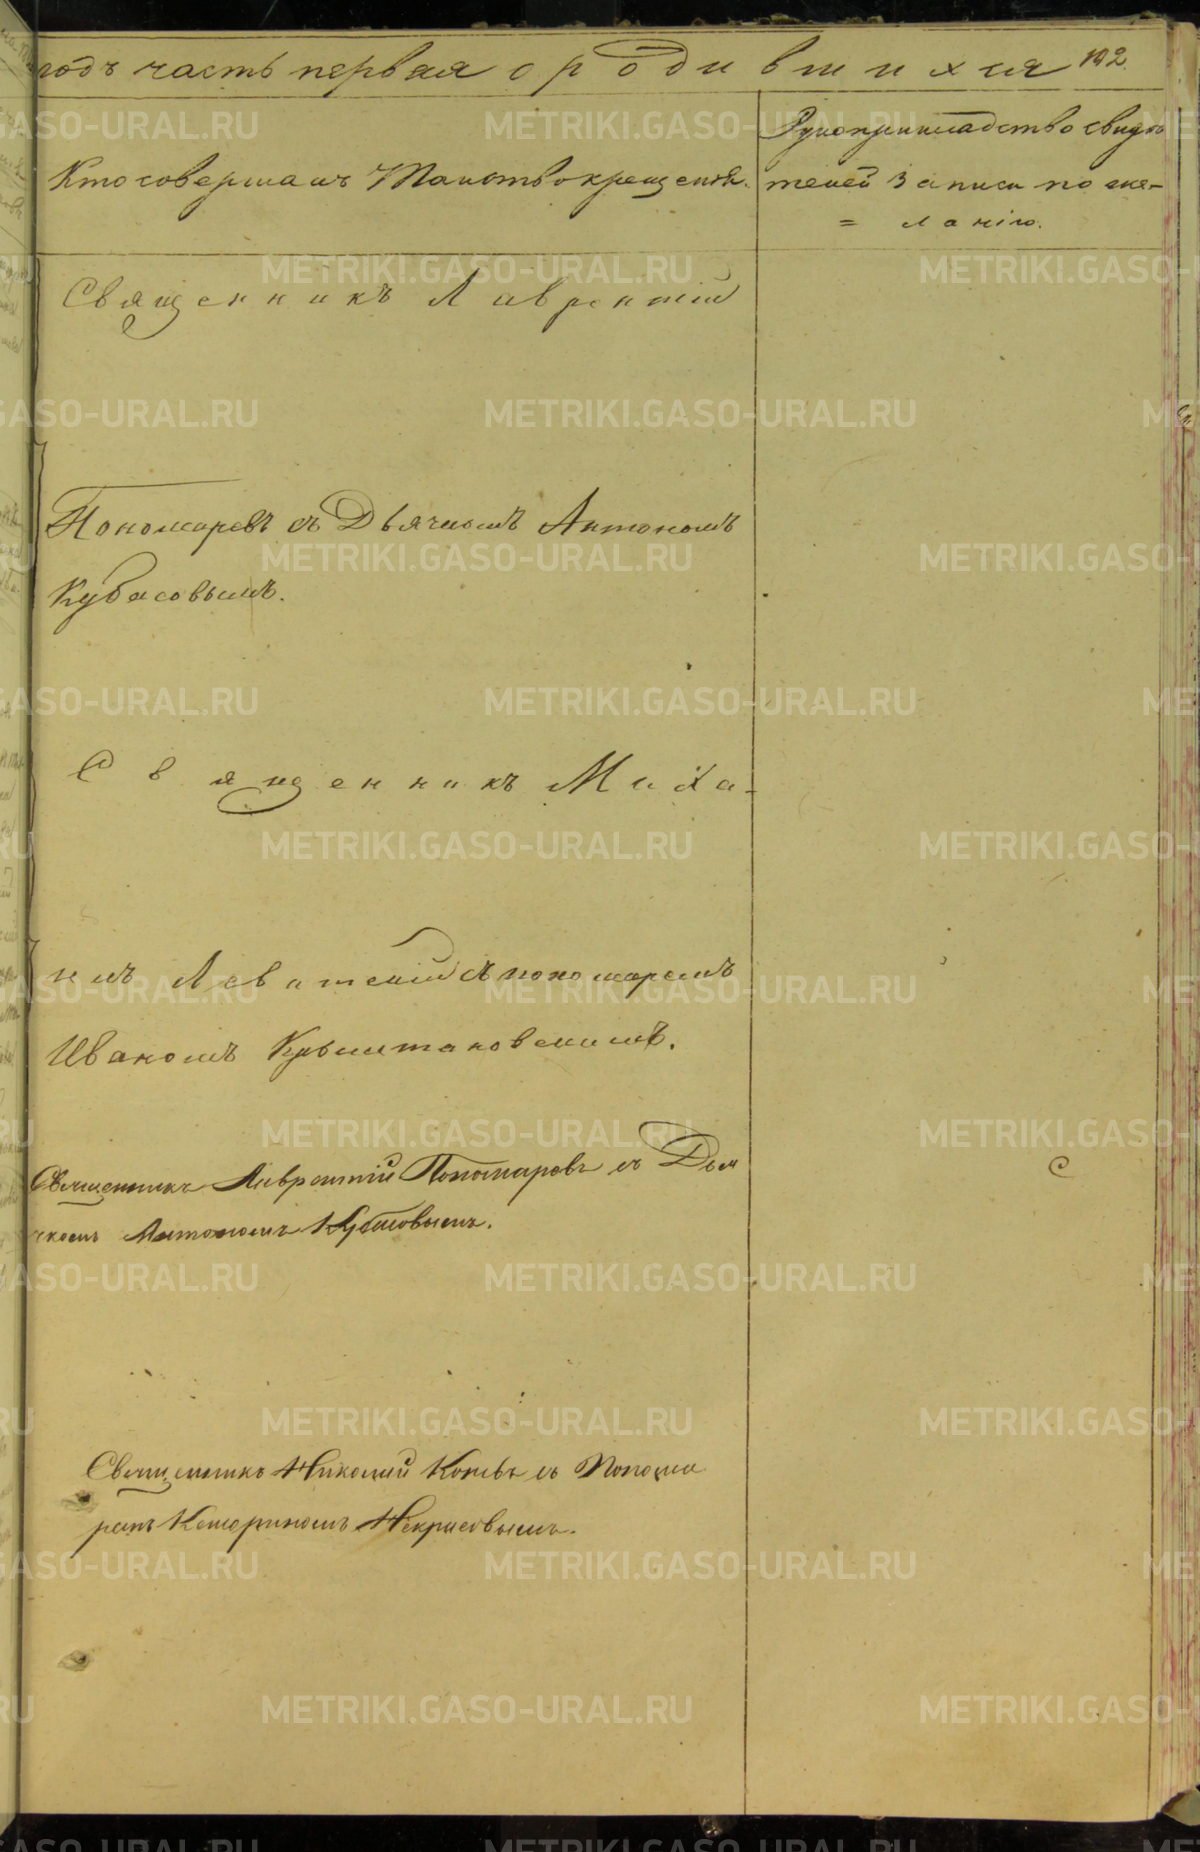 годъ часть первая о родившихся 192
Кто совершалъ Таинство крещенія.
Рукоприкладство свидѣ
телей записи по же-
= ланію.
Священникъ Лаврентій
Пономаревъ съ Дьячкомъ Антономъ
Кубасовымъ.
Священникъ Миха-
илъ съ пономаремъ
Иваномъ
Священникъ Лаврентій Пономаревъ съ Дья
чкомъ Антономъ Кубасовымъ.
Священникъ Николай съ Понома
ремъ Некрасовымъ.
METRIKI.GASO-URAL.RU